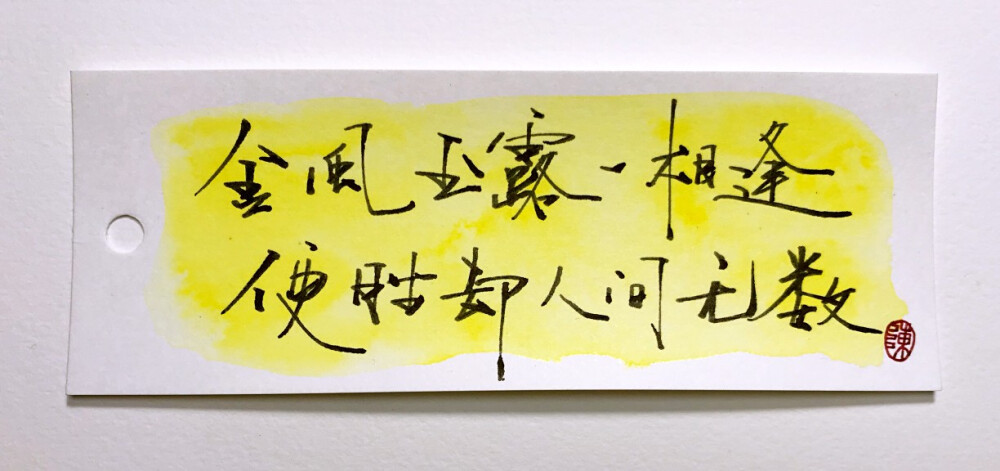 金风玉露一相逢
便胜却人间无数
陳